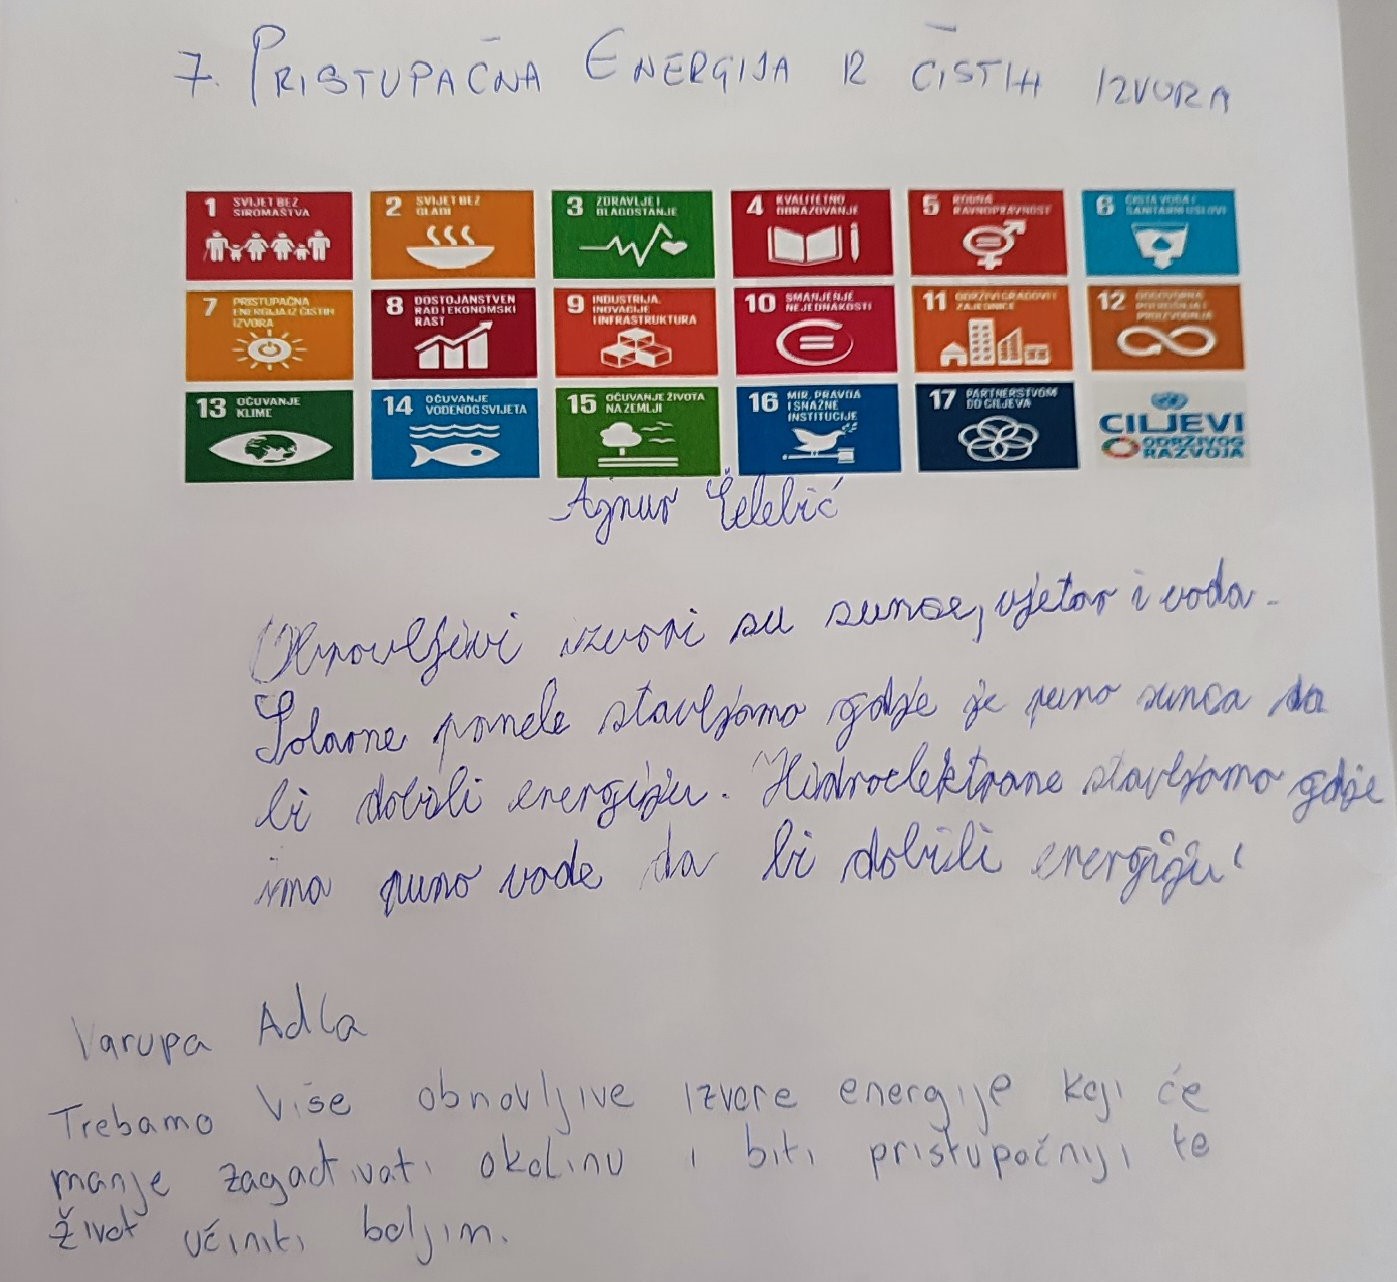 7. PRISTUPAČNA ENERGIJA IZ ČISTIH IZVORA
1 SVIJET BEZ
SIROMAŠTVA
2 SVIJET BEZ
GLADI
3 ZDRAVLJE I
BLAGOSTANJE
4 KVALITETNO
OBRAZOVANJE
5 RODNA
RAVNOPRAVNOST
6 ČISTA VODA I
SANITARNI USLOVI
7 PRISTUPAČNA
ENERGIJA IZ ČISTIH
IZVORA
8 DOSTOJANSTVEN
RAD I EKONOMSKI
RAST
9 INDUSTRIJA,
INOVACIJE
I INFRASTRUKTURA
10 SMANJENJE
NEJEDNAKOSTI
11 ODRŽIVI GRADOVI I
ZAJEDNICE
12 ODGOVORNA
POTROŠNJA I
PROIZVODNJA
13 OČUVANJE
KLIME
14 OČUVANJE
VODENOG SVIJETA
15 OČUVANJE ŽIVOTA
NA ZEMLJI
16 MIR, PRAVDA
I SNAŽNE
INSTITUCIJE
17 PARTNERSTVOM
DO CILJEVA
CILJEVI
ODRŽIVOG
RAZVOJA
Ajnur Čelebić
Obnovljivi izvori su sunce, vjetar i voda.
Solarne panele stavljamo gdje je puno sunca da
bi dobili energiju. Hidroelektrane stavljamo gdje
ima puno vode da bi dobili energiju.
Varupa Adla
Trebamo više obnovljive izvore energije koji će
manje zagađivati okolinu i biti pristupačniji te
život učiniti boljim.